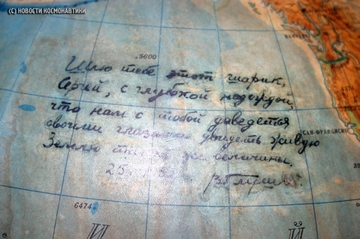 (C) НОВОСТИ КОСМОНАВТИКИ
.5600
Шлю тебе этот шарик,
Сергей, с глубокой надеждой,
что нам с тобой доведется
своими глазами увидеть живую
Землю такой же величины.
25
6474
САН-ФРАНЦИС